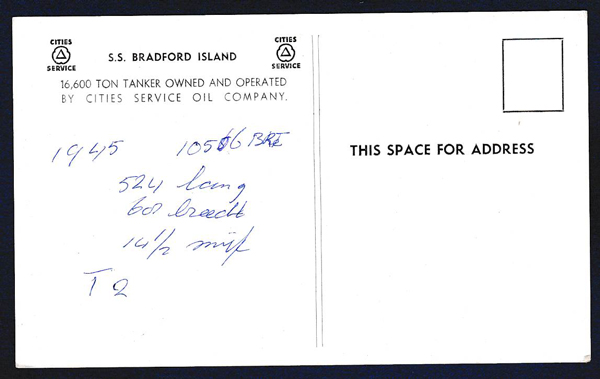 CITIES SERVICE
S.S. BRADFORD ISLAND
CITIES SERVICE
16,600 TON TANKER OWNED AND OPERATED
BY CITIES SERVICE OIL COMPANY.
1945 10516 BRT
524 lang
68 breedt
14 1/2 mijl
T 2
THIS SPACE FOR ADDRESS